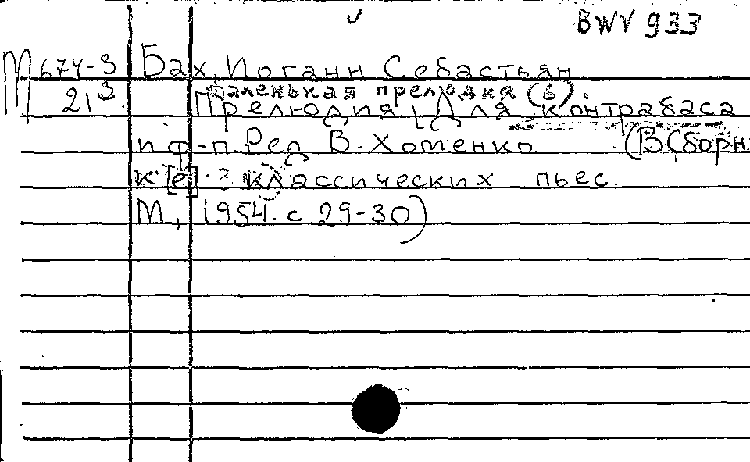 BWV 933
М 674-3 Бах, Иоганн Себастьян
21³ Маленькая прелюдия (6)
Прелюдия. Для контрабаса
и ф-п. Ред. В. Хоменко (В сборни
к[е]: классических пьес.
М., 1954. с 29-30)